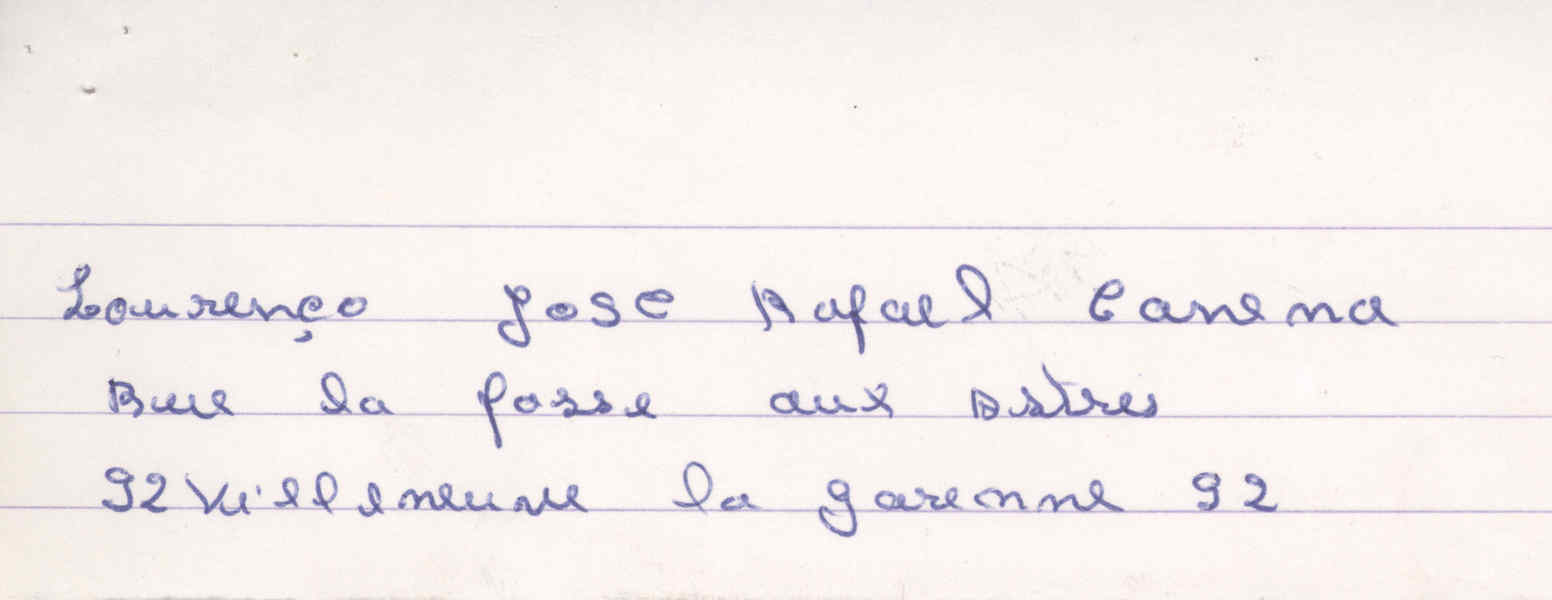 Lourenço José Rafael Canena
Rue la fosse aux Astres
92 Villeneuve la garenne 92